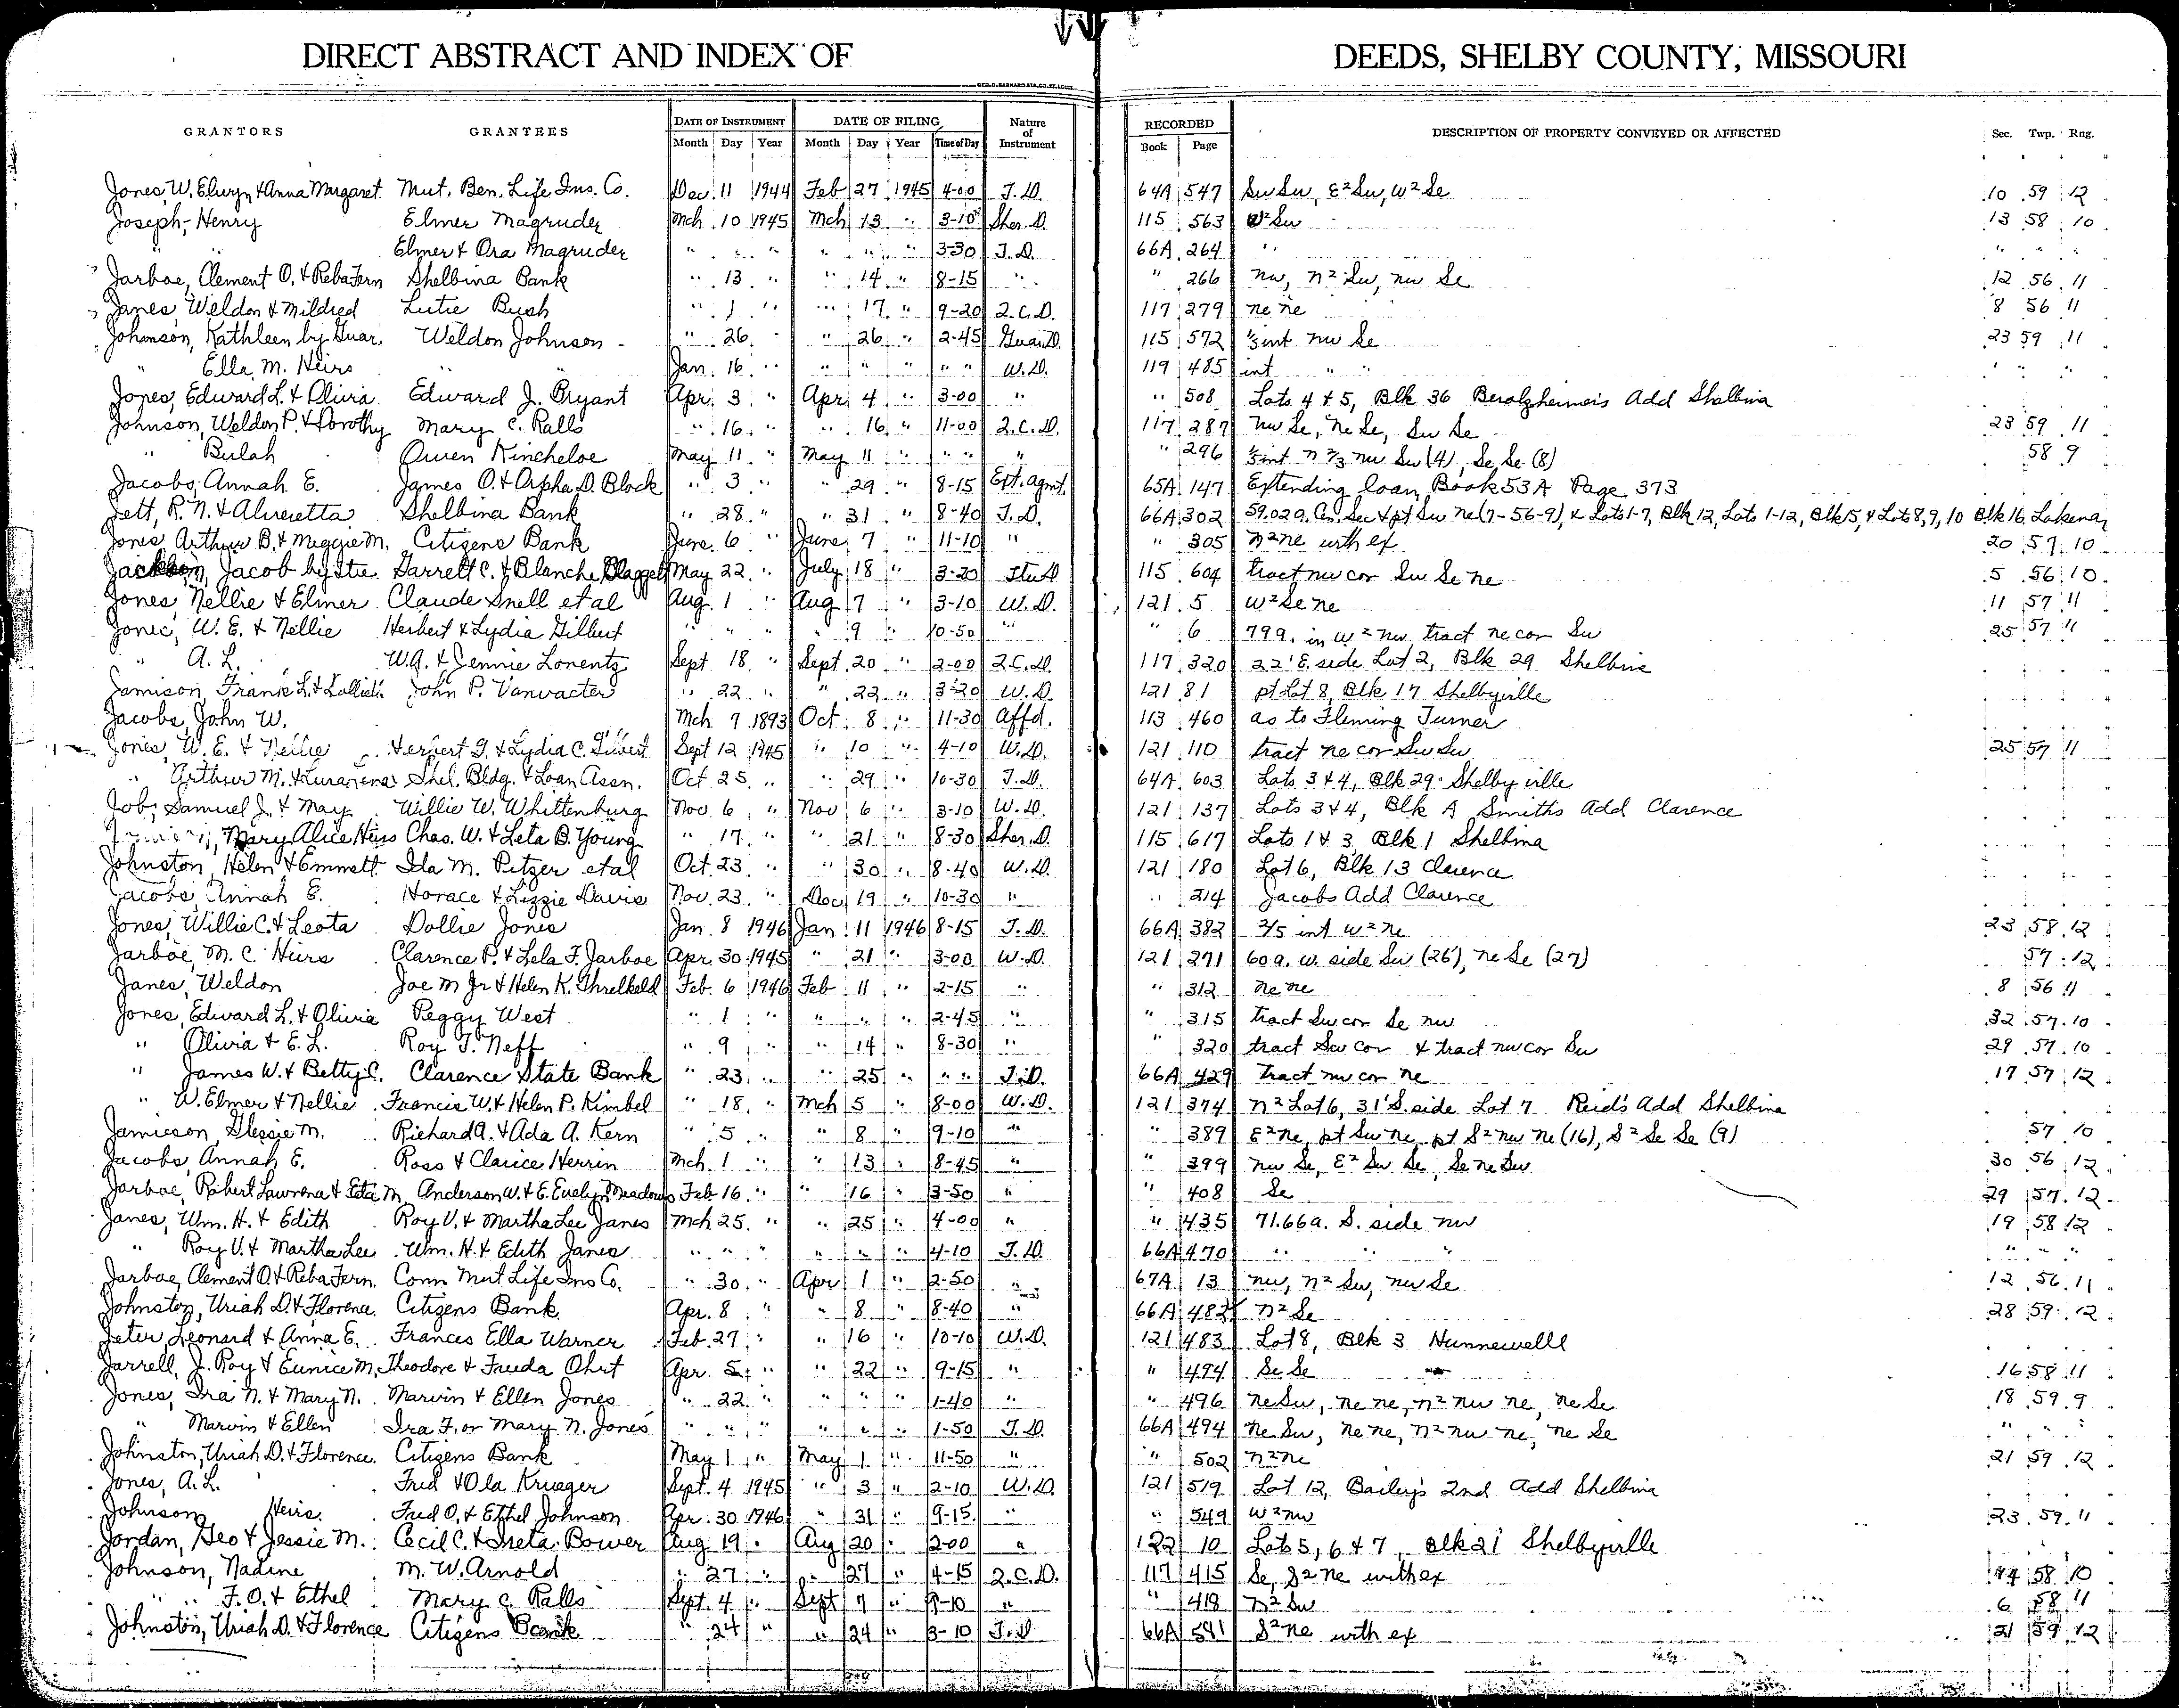 DIRECT ABSTRACT AND INDEX OF DEEDS, SHELBY COUNTY, MISSOURI
GRANTORS GRANTEES DATE OF INSTRUMENT DATE OF FILING Nature of Instrument RECORDED DESCRIPTION OF PROPERTY CONVEYED OR AFFECTED Sec. Twp. Rng.
Month Day Year Month Day Year Time of Day Book Page
Jones, W. Elwyn & Anna Margaret Mut. Ben. Life Ins. Co. Dec. 11 1944 Feb 27 1945 4-00 T.D. 64A 547 Sw Sw, E² Sw, W² Se 10 59 12
Joseph, Henry Elmer Magruder Mch. 10 1945 Mch 13 " 3-10 Sher. D. 115 563 W² Sw 13 58 10
" " Elmer & Ora Magruder " " " " " " 3-30 T.D. 66A 264 " " " "
Jarboe, Clement O. & Reba Fern Shelbina Bank " 13 " " 14 " 8-15 " " 266 nw, n² Sw, nw Se 12 56 11
Janes, Weldon & Mildred Lutie Bush " 1 " " 17 " 9-20 Q.C.D. 117 279 ne ne 8 56 11
Johnson, Kathleen by Guar. Weldon Johnson " 26 " " 26 " 2-45 Guar. D. 115 572 ⅓ int nw Se 23 59 11
" Ella M. Heirs " " Jan. 16 " " " " " " W.D. 119 485 int " " " " "
Jones, Edward L. & Olivia Edward J. Bryant Apr. 3 " Apr. 4 " 3-00 " " 508 Lots 4 & 5, Blk 36 Berolzheimer's Add Shelbina
Johnson, Weldon P. & Dorothy Mary C. Ralls " 16 " " 16 " 11-00 Q.C.D. 117 287 nw Se, ne Se, Sw Se 23 59 11
" Bulah Owen Kincheloe May 11 " May 11 " " " " " 296 ⅓ int n ⅔ nw Sw (4), Se, Se (8) 58 9
Jacobs, Annah E. James O. & Orpha D. Block " 3 " " 29 " 8-15 Ext. Agmt. 65A 147 Extending loan, Book 53A Page 373
Jett, R. N. & Alveretta Shelbina Bank " 28 " " 31 " 8-40 T.D. 66A 302 59.02 a. Sec & pt Sw ne (7-56-9), & Lots 1-7, Blk 12, Lots 1-12, Blk 5, & Lots 8, 9, 10 Blk 16, Lakenan
Jones Arthur B. & Meggie M. Citizens Bank June 6 " June 7 " 11-10 " " 305 n² ne with ex 20 57 10
Jackson, Jacob by Stee Garrett C. & Blanche Blaggett May 22 " July 18 " 3-20 115 604 tract nw cor Sw Se ne 5 56 10
Jones, Nellie & Elmer Claude Snell et al Aug. 1 " Aug 7 " 3-10 W.D. 121 5 W² Se ne 11 57 11
Jones, W. E. & Nellie Herbert & Lydia Gilbert " " " " 9 " 10-50 " " 6 79 a. in W² nw tract ne cor Sw 25 57 11
" A. L. W.A. & Jennie Lorentz Sept. 18 " Sept. 20 " 2-00 Q.C.D. 117 320 22' E. side Lot 2, Blk 29 Shelbina
Jamison, Frank L. & John P. Vanvacter " 22 " " 22 " 3-20 W.D. 121 81 pt Lot 8, Blk 17 Shelbyville
Jacobs, John W. Mch 7 1893 Oct. 8 " 11-30 Affd. 113 460 as to Fleming Turner
Jones, W. E. & Nellie Herbert G. & Lydia C. Sept 12 1945 " 10 " 4-10 W.D. 121 110 tract ne cor Sw Sw 25 57 11
" Arthur M. & Shel. Bldg. & Loan Assn. Oct 25 " " 29 " 10-30 T.D. 64A 603 Lots 3 & 4, Blk 29 Shelbyville
Job, Samuel J. & May Willie W. Whittenburg Nov. 6 " Nov 6 " 3-10 W.D. 121 137 Lots 3 & 4, Blk A Smiths Add Clarence
Mary Alice Heirs Chas. W. & Leta B. Young " 17 " " 21 " 8-30 Sher. D. 115 617 Lots 1 & 3, Blk 1 Shelbina
Johnston, Helen & Emmett Ida M. Pitzer et al Oct. 23 " " 30 " 8-40 W.D. 121 180 Lot 6, Blk 13 Clarence
Jacobs, Annah E. Horace & Lizzie Davis Nov. 23 " Dec. 19 " 10-30 " " 214 Jacobs Add Clarence
Jones, Willie C. & Leota Dollie Jones Jan. 8 1946 Jan. 11 1946 8-15 T.D. 66A 382 2/5 int W² ne 23 58 12
Jarboe, M. C. Heirs Clarence P. & Lela F. Jarboe Apr. 30 1945 " 21 " 3-00 W.D. 121 271 60 a. W. side Sw (26), ne Se (27) 57 12
Janes, Weldon Joe M Jr & Helen K. Threlkeld Feb. 6 1946 Feb 11 " 2-15 " " 312 ne ne 8 56 11
Jones, Edward L. & Olivia Peggy West " 1 " " " " 2-45 " " 315 tract Sw cor Se nw 32 57 10
" Olivia & E. L. Roy T. Neff " 9 " " 14 " 8-30 " " 320 tract Sw cor & tract nw cor Sw 29 57 10
" James W. & Betty C. Clarence State Bank " 23 " " 25 " " " T.D. 66A 429 tract nw cor ne 17 57 12
" W. Elmer & Nellie Francis W. & Helen P. Kimbel " 18 " Mch 5 " 8-00 W.D. 121 374 n² Lot 6, 31' S. side Lot 7 Reid's Add Shelbina
Jamieson, Glessie M. Richard A. & Ada A. Kern " 5 " " 8 " 9-10 " " 389 E² ne, pt Sw ne, pt S² nw ne (16), S² Se Se (9) 57 10
Jacobs, Annah E. Ross & Clarice Herrin Mch. 1 " " 13 " 8-45 " " 399 nw Se, E² Sw Se, Se ne Sw 30 56 12
Jarboe, Robert Lawrence & Eda M. Anderson W. & E. Evelyn Meadows Feb 16 " " 16 " 3-50 " " 408 Se 29 57 12
Janes, Wm. H. & Edith Roy V. & Martha Lee Janes Mch 25 " " 25 " 4-00 " " 435 71.66 a. S. side nw 19 58 12
" Roy V. & Martha Lee Wm. H. & Edith Janes " " " " " " 4-10 T.D. 66A 470 " " " " " "
Jarboe, Clement O. & Reba Fern Conn Mut Life Ins Co. " 30 " Apr 1 " 2-50 " 67A 13 nw, n² Sw, nw Se 12 56 11
Johnston, Uriah D. & Florence Citizens Bank Apr. 8 " " 8 " 8-40 " 66A 482 n² Se 28 59 12
Jeter, Leonard & Anna E. Frances Ella Warner Feb. 27 " " 16 " 10-10 W.D. 121 483 Lot 8, Blk 3 Hunnewelll
Jarrell, J. Roy & Eunice M. Theodore & Frieda Ohrt Apr. 5 " " 22 " 9-15 " " 494 Se Se 16 58 11
Jones, Ira N. & Mary N. Marvin & Ellen Jones " 22 " " " " 1-40 " " 496 ne Sw, ne ne, n² nw ne, ne Se 18 59 9
" Marvin & Ellen Ira F. or Mary N. Jones " " " " " " 1-50 T.D. 66A 494 ne Sw, ne ne, n² nw ne, ne Se " " "
Johnston, Uriah D. & Florence Citizens Bank May 1 " May 1 " 11-50 " " 502 n² ne 21 59 12
Jones, A. L. Fred & Ola Krueger Sept. 4 1945 " 3 " 2-10 W.D. 121 519 Lot 12, Bailey's 2nd Add Shelbina
Johnson Heirs Fred O. & Ethel Johnson Apr. 30 1946 " 31 " 9-15 " " 549 W² nw 23 59 11
Jordan, Geo & Jessie M. Cecil C. & Bower Aug 19 " Aug 20 " 2-00 " 122 10 Lots 5, 6 & 7, Blk 21 Shelbyville
Johnson, Nadine M. W. Arnold " 27 " " 27 " 4-15 Q.C.D. 117 415 Se, S² ne with ex 14 58 10
" F. O. & Ethel Mary C. Ralls Sept. 4 " Sept 7 " 9-10 " " 418 n² Sw 6 58 11
Johnston, Uriah D. & Florence Citizens Bank " 24 " " 24 " 3-10 T.D. 66A 581 S² ne with ex 21 59 12